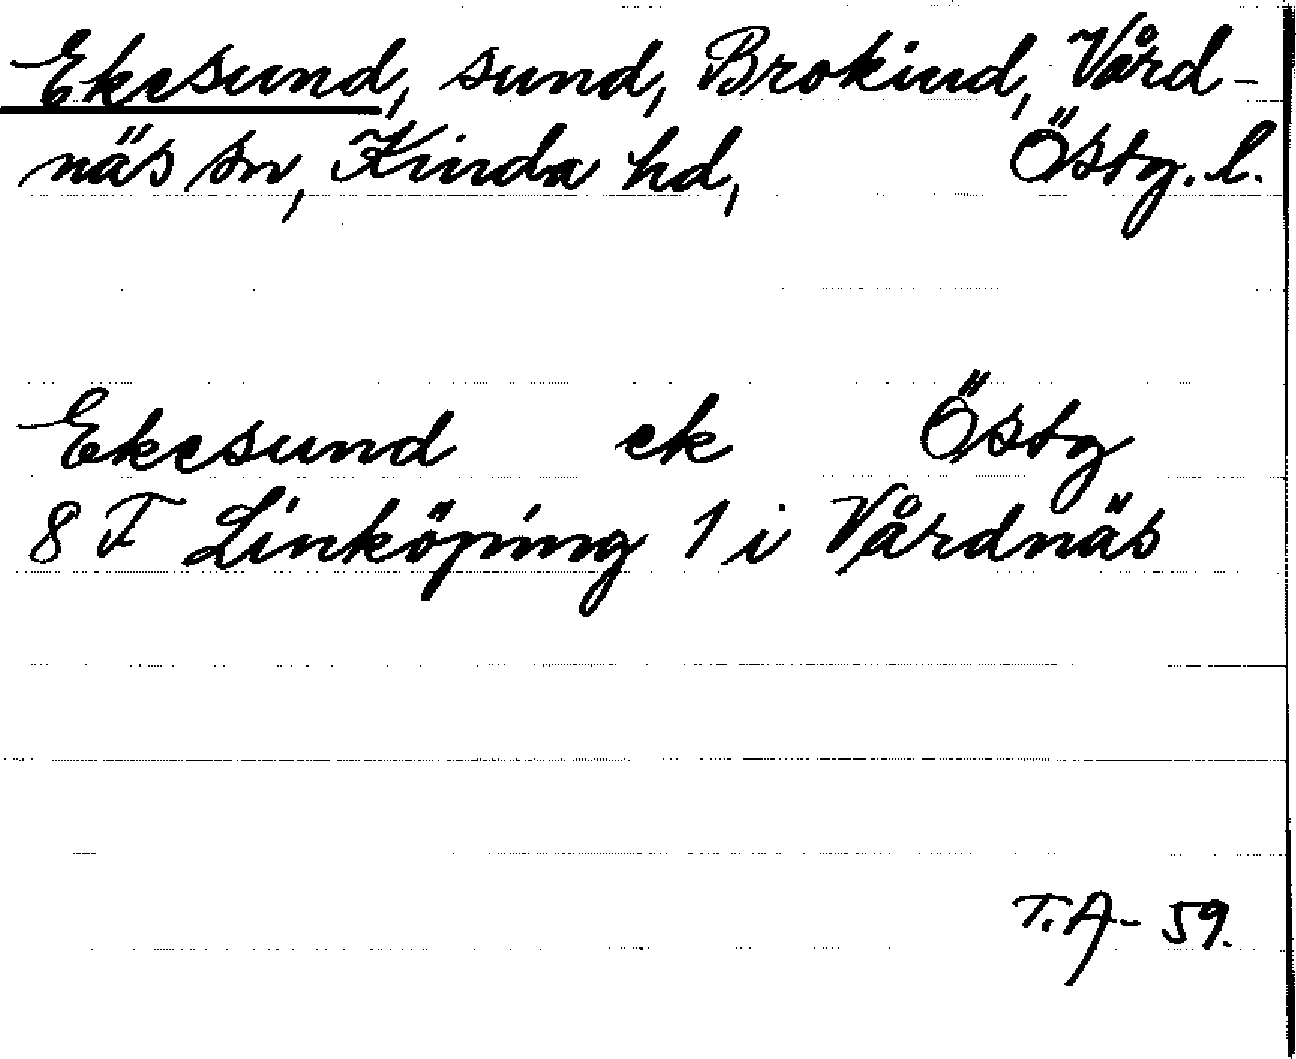 Ekesund, sund, Brokind, Vård-
näs sn, Kinda hd, Östg. l.
Ekesund ek Östg
8 F Linköping 1 i Vårdnäs
T.A- 59.